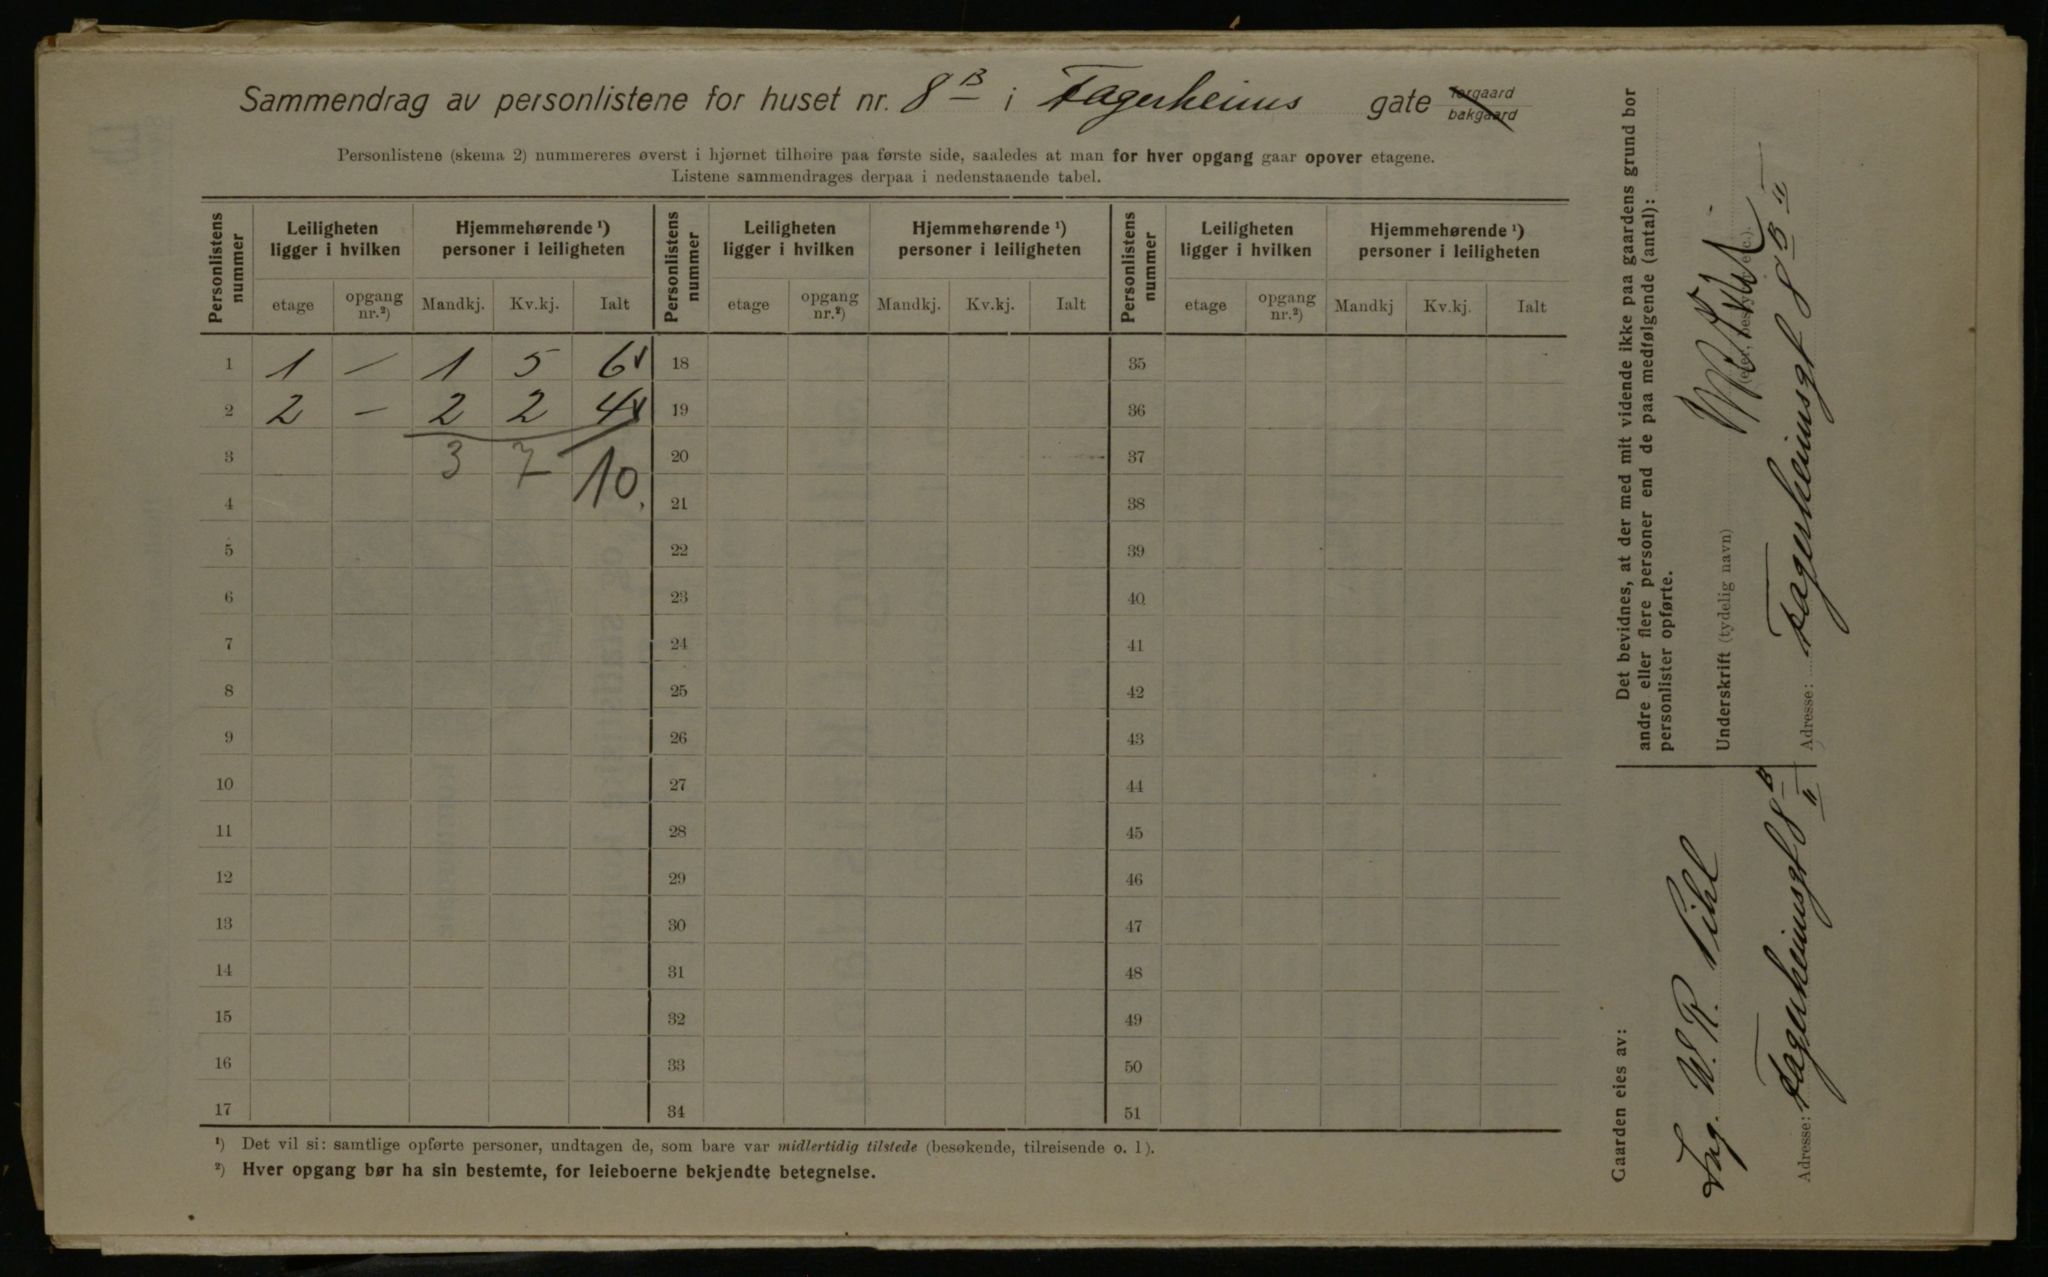 Sammendrag av personlistene for huset nr. 8 B i Fagerheims gate forgaard bakgaard
Personlistene (skema 2) nummereres øverst i hjørnet tilhøire paa første side, saaledes at man for hver opgang gaar opover etagene.
Listene sammendrages derpaa i nedenstaaende tabel.
Personlistens nummer Leiligheten ligger i hvilken Hjemmehørende ¹) personer i leiligheten Personlistens nummer Leiligheten ligger i hvilken Hjemmehørende ¹) personer i leiligheten Personlistens nummer Leiligheten ligger i hvilken Hjemmehørende ¹) personer i leiligheten
etage opgang nr.²) Mandkj. Kv.kj. Ialt etage opgang nr.²) Mandkj. Kv.kj. Ialt etage opgang nr.²) Mandkj Kv.kj. Ialt
1 1 — 1 5 6 18 35
2 2 — 2 2 4 19 36
3 3 7 10 20 37
4 21 38
5 22 39
6 23 40
7 24 41
8 25 42
9 26 43
10 27 44
11 28 45
12 29 46
13 30 47
14 31 48
15 32 49
16 33 50
17 34 51
¹) Det vil si: samtlige opførte personer, undtagen de, som bare var midlertidig tilstede (besøkende, tilreisende o. l).
²) Hver opgang bør ha sin bestemte, for leieboerne bekjendte betegnelse.
Det bevidnes, at der med mit vidende ikke paa gaardens grund bor
andre eller flere personer end de paa medfølgende (antal):
personlister opførte.
Underskrift (tydelig navn)
(eier, bestyrer etc.).
Adresse: Fagerheimsgt 8 B II
Gaarden eies av:
Ing. W. R. Pihl
Adresse: Fagerheimsgt 8 B II